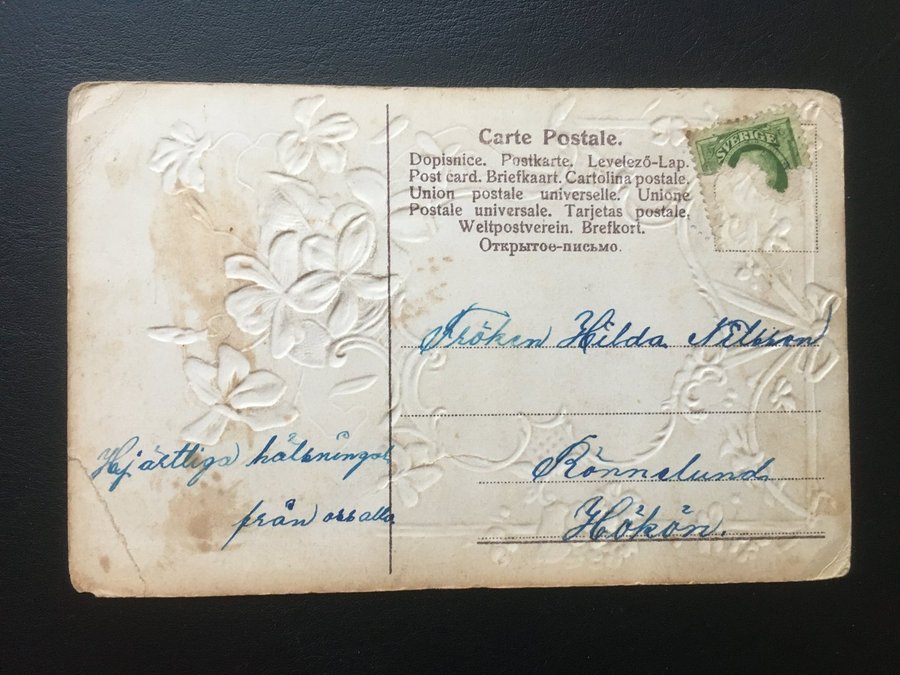 Carte Postale.
Dopisnice. Postkarte. Levelező-Lap.
Post card. Briefkaart. Cartolina postale.
Union postale universelle. Unione
Postale universale. Tarjetas postale.
Weltpostverein. Brefkort.
Открытое-письмо.
SVERIGE
Fröken Hilda Nilsson
Rönnelund
Hökön.
Hjärtliga hälsningar
från oss alla